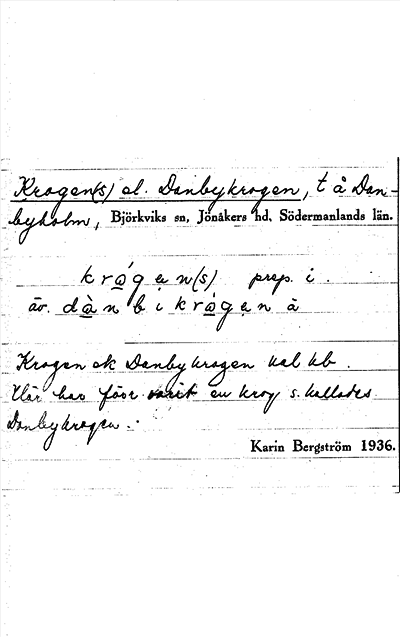 Krogen(s) el. Danbykrogen, t å Dan-
byholm, Björkviks sn, Jönåkers hd, Södermanlands län.
kró̱ge̱n(s) prep. i.
äv. dà̱nbikró̱ge̱n å
Krogen ek Danbykrogen
Här har förr varit en krog s. kallades
Danbykrogen.
Karin Bergström 1936.